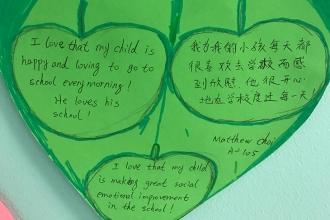 I love that my child is
happy and loving to go to
school every morning!
He loves his
school!
我为我的小孩每天都
很喜欢去学校而感
到欣慰.他很开心
地在学校度过每一天!
Matthew Choi
A-105
I love that my child
is making great social
emotional improvement
in the school!